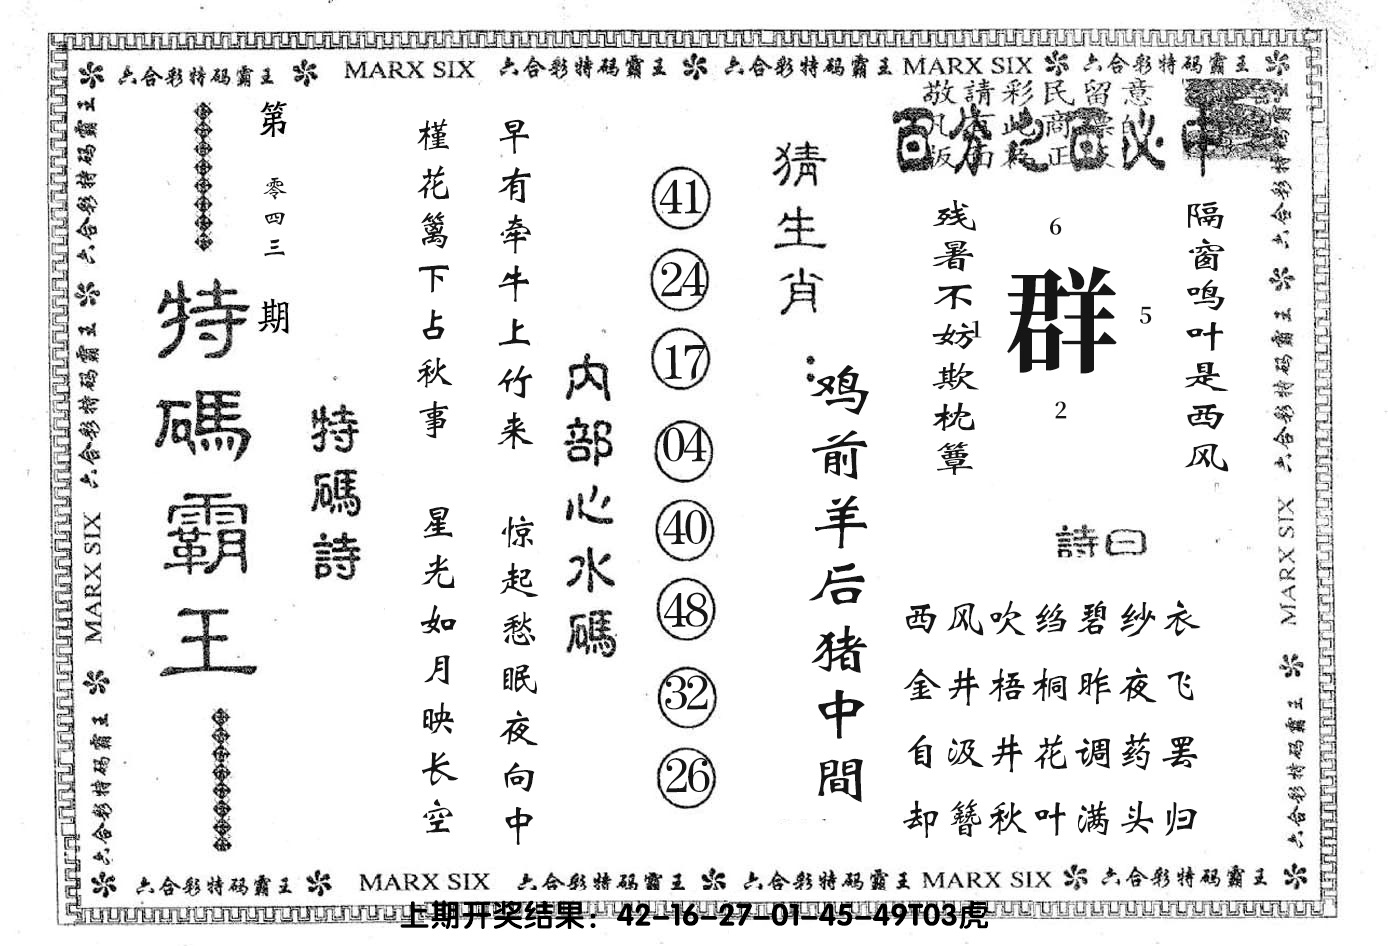 六合彩特码霸王 MARX SIX 六合彩特码霸王 六合彩特码霸王 MARX SIX 六合彩特码霸王
敬請彩民留意
百分之百必中
隔窗鸣叶是西风
6
群
1
5
2
残暑不妨欺枕簟
詩曰
西风吹绉碧纱衣
金井梧桐昨夜飞
自汲井花调药罢
却簪秋叶满头归
猜生肖：
鸡前羊后猪中間
41
24
17
04
40
48
32
26
内部心水碼
早有牵牛上竹来
惊起愁眠夜向中
槿花篱下占秋事
星光如月映长空
特碼詩
第零四三期
特碼霸王
六合彩特码霸王 六合彩特码霸王 MARX SIX 六合彩特码霸王
六合彩特码霸王 六合彩特码霸王 MARX SIX 六合彩特码霸王
六合彩特码霸王 MARX SIX 六合彩特码霸王 六合彩特码霸王 MARX SIX 六合彩特码霸王
上期开奖结果：42-16-27-01-45-49T03虎